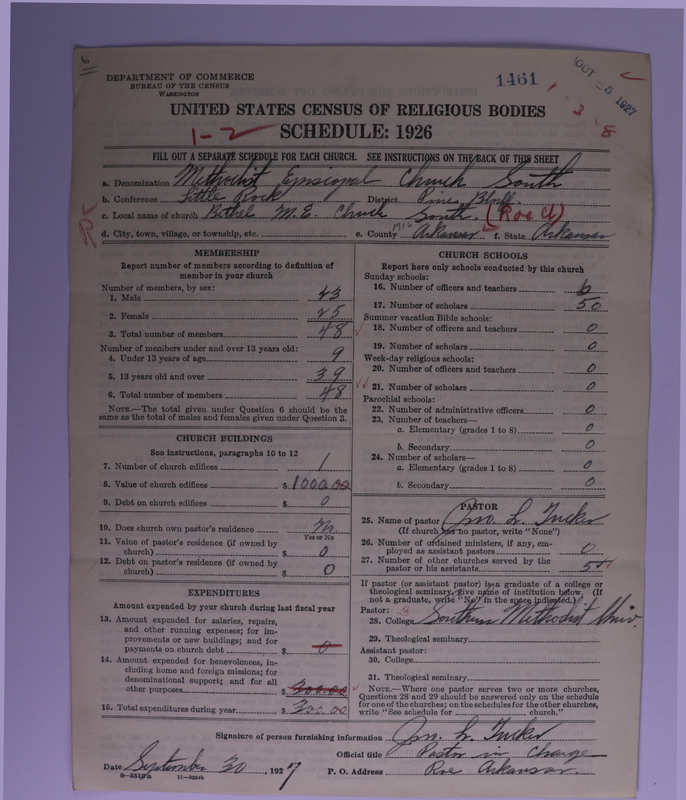 DEPARTMENT OF COMMERCE
BUREAU OF THE CENSUS
WASHINGTON
1461
OCT - 5 1927
1 - 3 - 8
UNITED STATES CENSUS OF RELIGIOUS BODIES
1-2
SCHEDULE: 1926
FILL OUT A SEPARATE SCHEDULE FOR EACH CHURCH. SEE INSTRUCTIONS ON THE BACK OF THIS SHEET
a. Denomination Methodist Episcopal Church South
b. Conference Little Rock District Pine Bluff
c. Local name of church Bethel M.E. Church South. (Roe Ct)
d. City, town, village, or township, etc. e. County Arkansas f. State Arkansas
MEMBERSHIP
Report number of members according to definition of
member in your church
Number of members, by sex:
1. Male 23
2. Female 25
3. Total number of members 48
Number of members under and over 13 years old:
4. Under 13 years of age 9
5. 13 years old and over 39
6. Total number of members 48
NOTE.—The total given under Question 6 should be the
same as the total of males and females given under Question 3.
CHURCH BUILDINGS
See instructions, paragraphs 10 to 12
7. Number of church edifices 1
8. Value of church edifices $1000.00
9. Debt on church edifices $ 0
10. Does church own pastor's residence No
Yes or No
11. Value of pastor's residence (if owned by
church) $ 0
12. Debt on pastor's residence (if owned by
church) $ 0
EXPENDITURES
Amount expended by your church during last fiscal year
13. Amount expended for salaries, repairs,
and other running expenses; for im-
provements or new buildings; and for
payments on church debt $ 0
14. Amount expended for benevolences, in-
cluding home and foreign missions; for
denominational support; and for all
other purposes $ 300.00
15. Total expenditures during year $ 300.00
CHURCH SCHOOLS
Report here only schools conducted by this church
Sunday schools:
16. Number of officers and teachers 6
17. Number of scholars 50
Summer vacation Bible schools:
18. Number of officers and teachers 0
19. Number of scholars 0
Week-day religious schools:
20. Number of officers and teachers 0
21. Number of scholars 0
Parochial schools:
22. Number of administrative officers 0
23. Number of teachers—
a. Elementary (grades 1 to 8) 0
b. Secondary 0
24. Number of scholars—
a. Elementary (grades 1 to 8) 0
b. Secondary 0
PASTOR
25. Name of pastor Jno. L. Tucker
(If church has no pastor, write "None")
26. Number of ordained ministers, if any, em-
ployed as assistant pastors 0
27. Number of other churches served by the
pastor or his assistants 5
If pastor (or assistant pastor) is a graduate of a college or
theological seminary, give name of institution below. (If
not a graduate, write "No" in the space indicated.)
Pastor:
28. College Southern Methodist Univ.
29. Theological seminary
Assistant pastor:
30. College
31. Theological seminary
NOTE.—Where one pastor serves two or more churches,
Questions 28 and 29 should be answered only on the schedule
for one of the churches; on the schedules for the other churches,
write "See schedule for church."
Signature of person furnishing information Jno. L. Tucker
Official title Pastor in Charge
Date September 30, 1927 P. O. Address Roe Arkansas.